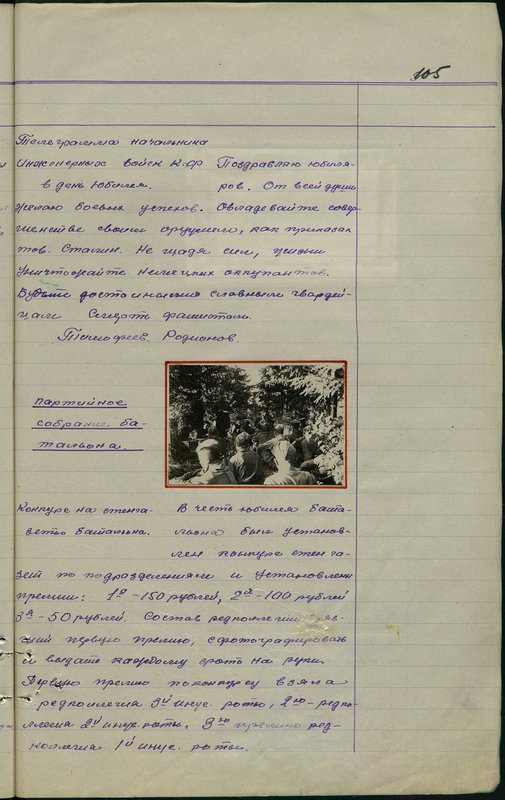 105
Телеграмма начальника
Инженерных войск КФ Поздравляю юбиля-
в день юбилея. ров. От всей души
желаю боевых успехов. Овладевайте совер-
шенстве своим оружием, как приказал
тов. Сталин. Не щадя сил, жизни
уничтожайте немецких оккупантов.
Будьте достойными славным гвардей-
цам Смерть фашистам.
Тимофеев. Родионов.
Партийное
собрание ба-
тальона.
Конкурс на стенга- В честь юбилея бата-
зету батальона. льона был установ-
лен конкурс стен га-
зет по подразделениям и установлены
премии: 1я - 150 рублей, 2я - 100 рублей
3я - 50 рублей. Состав редколлегии
первую премию, сфотографировать
и выдать каждому фото на руки.
Первую премию по конкурсу взяла
редколлегия 3й инж. роты, 2ю - редко-
ллегия 2й инж. роты. 3ю премию ред-
коллегия 1й инж. роты.